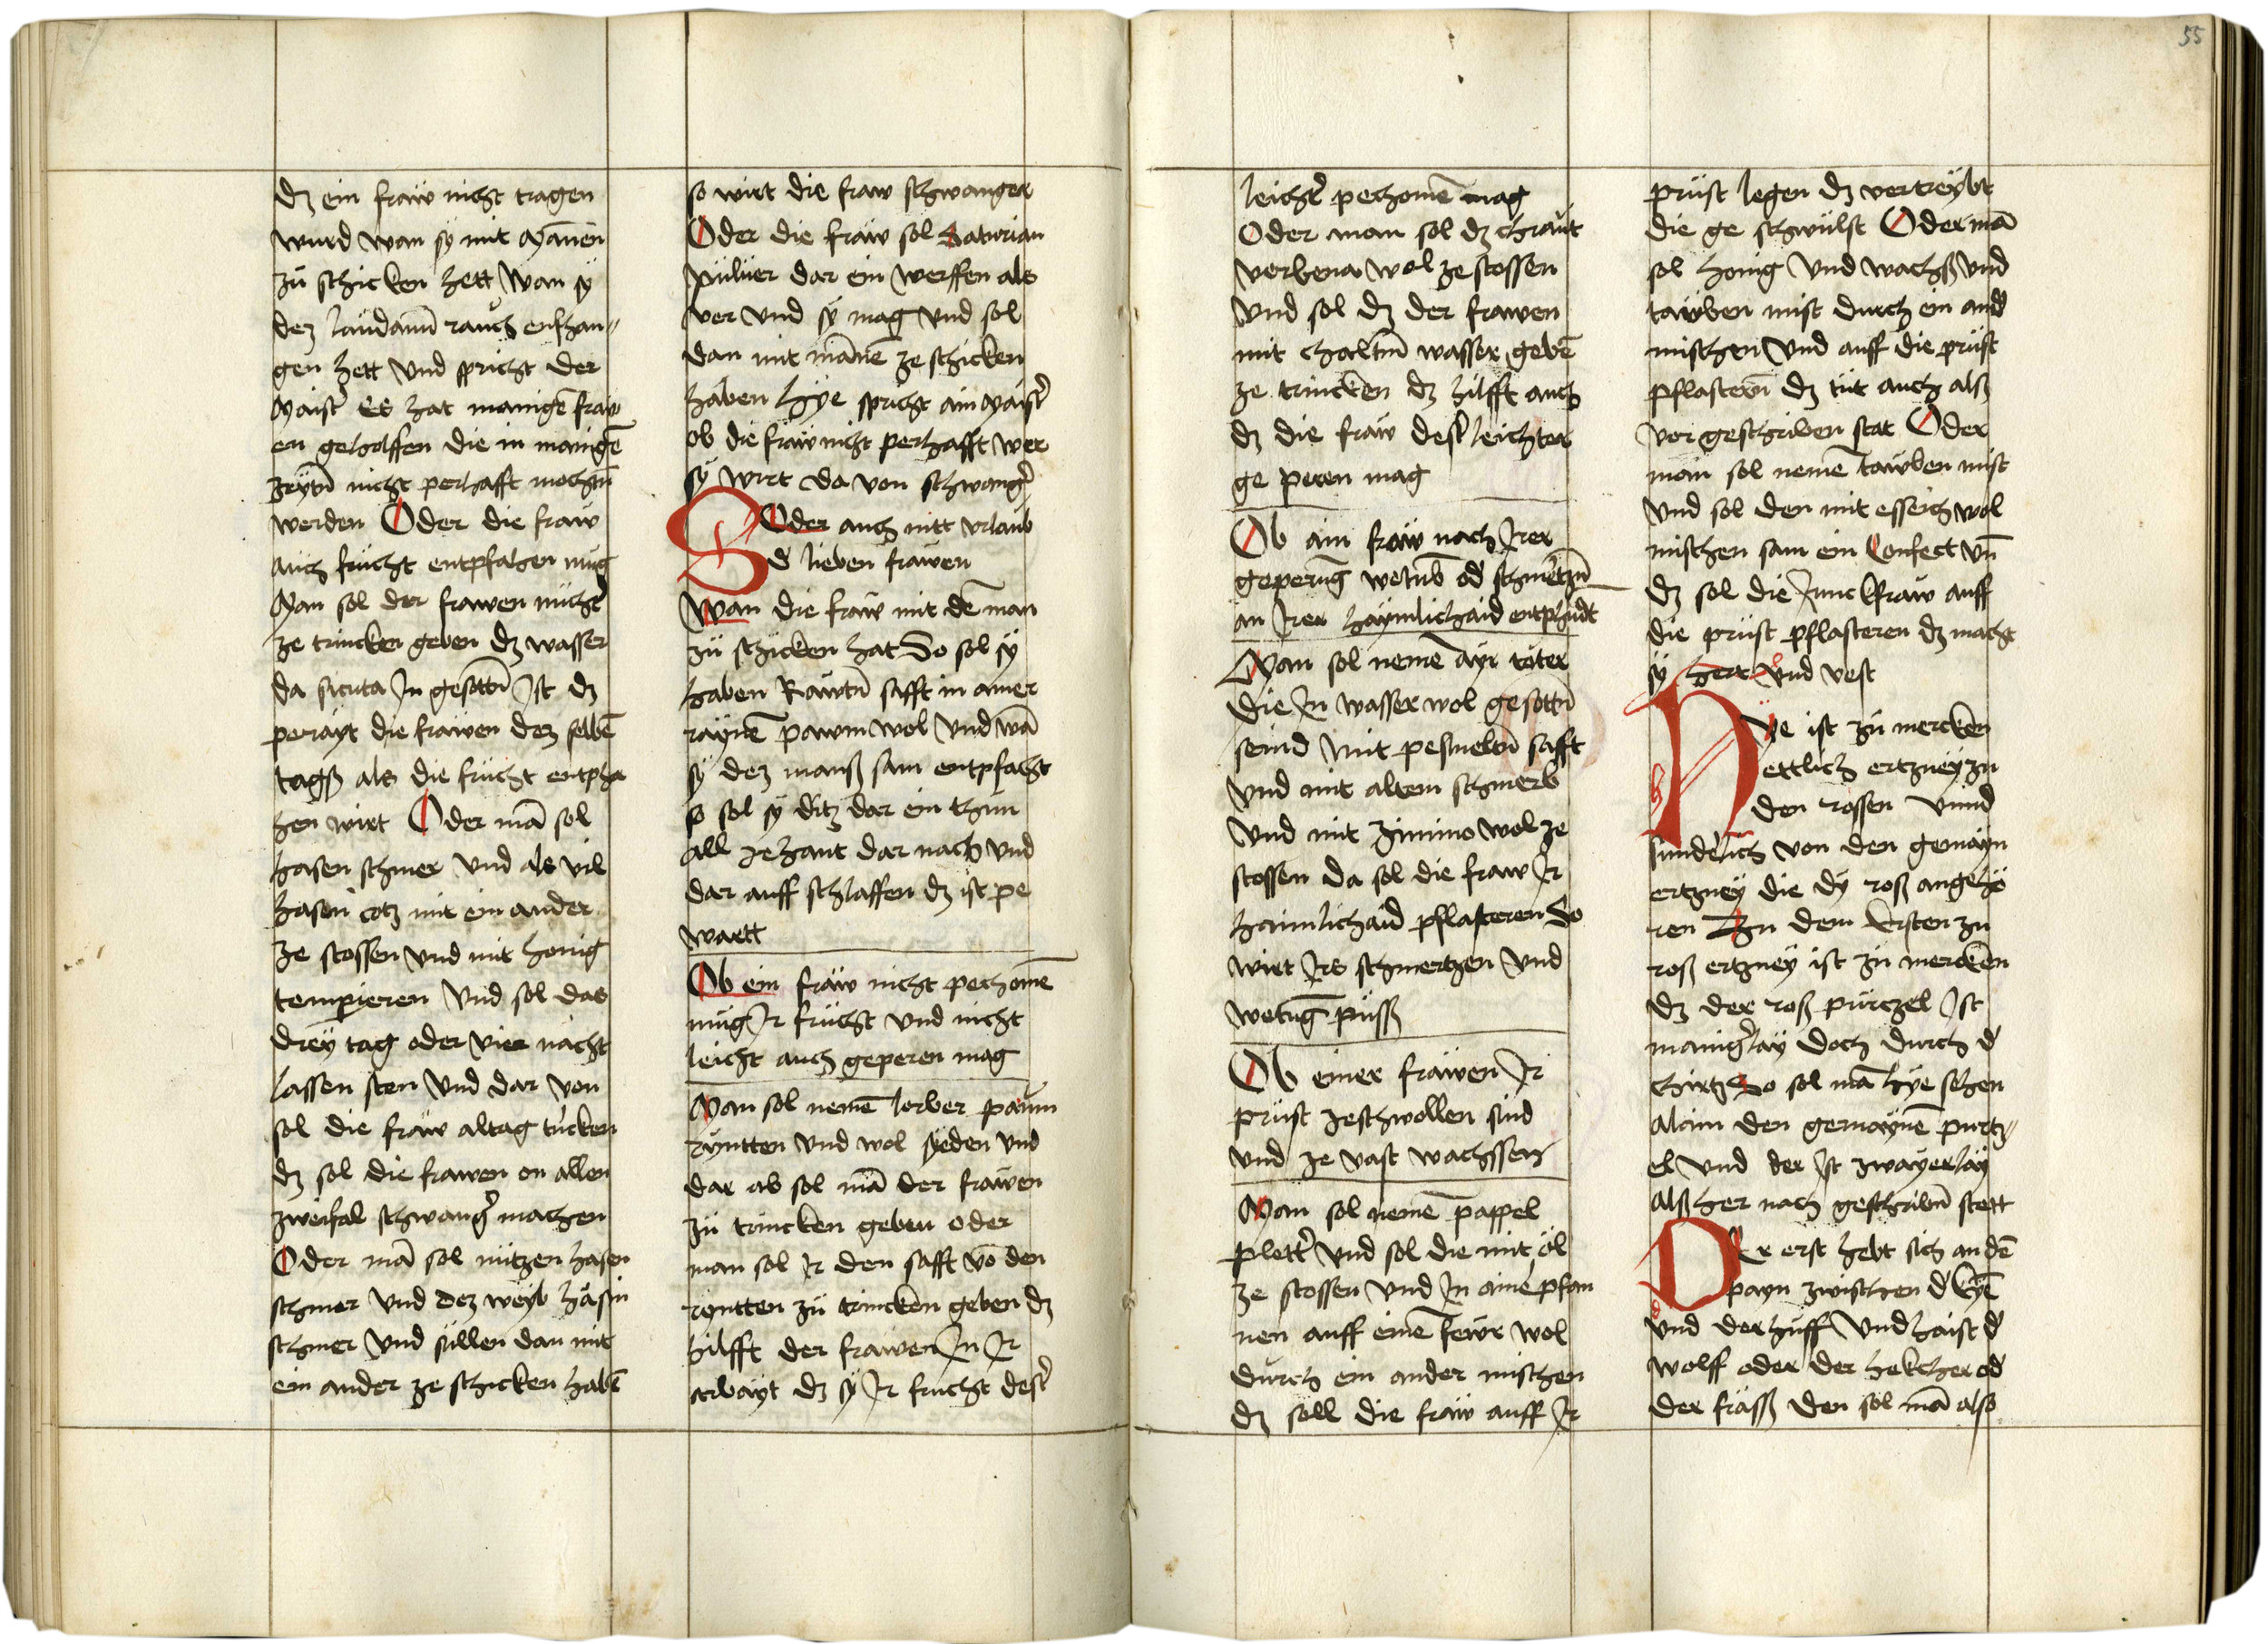 55
dz ein fraw nicht tragen
wurd wan sy mit Mannen
zu schicken hett Wan sy
dez laudanū rauch enphan〃
gen hett Vnd spricht der
Maistˀ Es hat manigē fraw
en geholffen die in mangē
zeytñ nicht perhafft mochtñ
werden Oder die fraw
auch frucht entpfahen mug
Man sol der frawen nuchtˀ
ze trincken geben dz wasser
da sicuta Jn gesottñ Jst dz
perayt die frawen dez selbē
tagß als die frucht entpha
hen wirt Oder mā sol
hasen schmer Vnd als vil
hasen cotz mit ein ander
ze stossen vnd mit honig
tempieren Vnd sol das
drey tag oder Vier nacht
lassen sten Vnd dar Von
sol die fraw altag tricken
dz sol die frawen on allen
zweifal schwangˀ machen
Oder mā sol nutzen hasen
schmer Vnd dez weyb häsin
schmer Vnd süllen dan mit
ein ander ze schicken habē
so wirt die fraw schwanger
Oder die fraw sol Saturian
puluer dar ein werffen als
ver Vnd sy mag Vnd sol
dan mit mānē ze schicken
haben hye spricht ain Maistˀ
ob die fraw nicht perhafft wer
sy wirt da Von schwangˀ
Oder auch mitt vrlaub
d lieben frawen
Wan die fraw mit dē man
zu schicken hat So sol sy
haben Rawtñ safft in ainer
raynē pawm wol Vnd wā
sy dez manß sam entpfacht
so sol sy ditz dar ein thun
all ze hant dar nach vnd
dar auff schlaffen dz ist pe
wartt
Ob ein fraw nicht pechomē
mug Jr frücht Vnd nicht
leicht auch geperen mag
Man sol nemē lorber paum
ryntten Vnd wol syeden Vnd
dar ab sol mā der frawen
zu trincken geben oder
man sol Jr den safft vō den
ryntten zu trincken geben dz
hilfft der frawen Jn Jr
arbayt dz sy Jr frucht destˀ
leichtˀ pechomē mag
Oder man sol dz chraut
verbena wol ze stossen
Vnd sol dz der frawen
mit chaltm wasser gebē
ze trincken dz hilfft auch
dz die fraw destˀ leichter
ge peren mag
Ob ain fraw nach Jrer
geperūg wetūb od schmertzñ
an Jrer haymlichaid entphindt
Man sol nemē ayr toter
die Jn wasser wol gesottñ
seind Mit safft
Vnd mit altem schmerb
Vnd mit zimino wol ze
stossen da sol die fraw Jr
haimlichaid pflasteren So
wirt Jrs schmertzen Vnd
wetūg püss
Ob einer frawen Jr
prüst zeschwollen sind
Vnd ze vast wachssen
Man sol nemē pappel
plettˀ Vnd sol die mit öl
ze stossen Vnd Jn ainē pfan
nen auff einē fewr wol
durch ein ander mischen
dz soll die fraw auff Jr
prüst legen dz vertreybt
die ge schwülst Oder mā
sol honig Vnd wachß Vnd
tawben mist durch ein andˀ
mischen Vnd auff die prüst
pflastern dz tut auch alß
vor geschriben stat Oder
man sol nemē tawben mist
Vnd sol den mit esseich wol
mischen sam ein Confect vñ
dz sol die Junckfraw auff
die prüst pflasteren dz macht
sy hert Vnd vest
Hye ist zu mercken
ettlich ertzney zu
den rossen Vnnd
sunderlich von den gemayn
ertzney die dy roß angehö
ren Zu dem Ersten zu
roß ertzney ist zu mercken
dz der roß pürtzel Jst
manigˀlay Doch durch dˀ
chürtz So sol mā hye sehen
alain den gemaynē purtz〃
el Vnd der Jst zwayerlay
Alß her nach geschribñ stett
Der erst hebt sich an dē
payn zwischen dˀ kyē
Vnd der huff Vnd haist dˀ
wolff oder der hekcher odˀ
der fraß den sol mā also